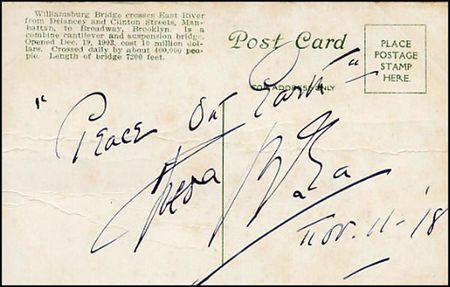 Williamsburg Bridge crosses East River
from Delancey and Clinton Streets, Man-
hattan, to Broadway, Brooklyn. Is a
combine cantilever and suspension bridge.
Opened Dec. 19, 1903, cost 10 million dol-
lars. Crossed daily by about 400,000 peo-
ple. Length of bridge 7200 feet.
Post Card
FOR ADDRESS ONLY
PLACE
POSTAGE
STAMP
HERE.
"Peace On Earth"
Theda Bara
Nov. 11-'18